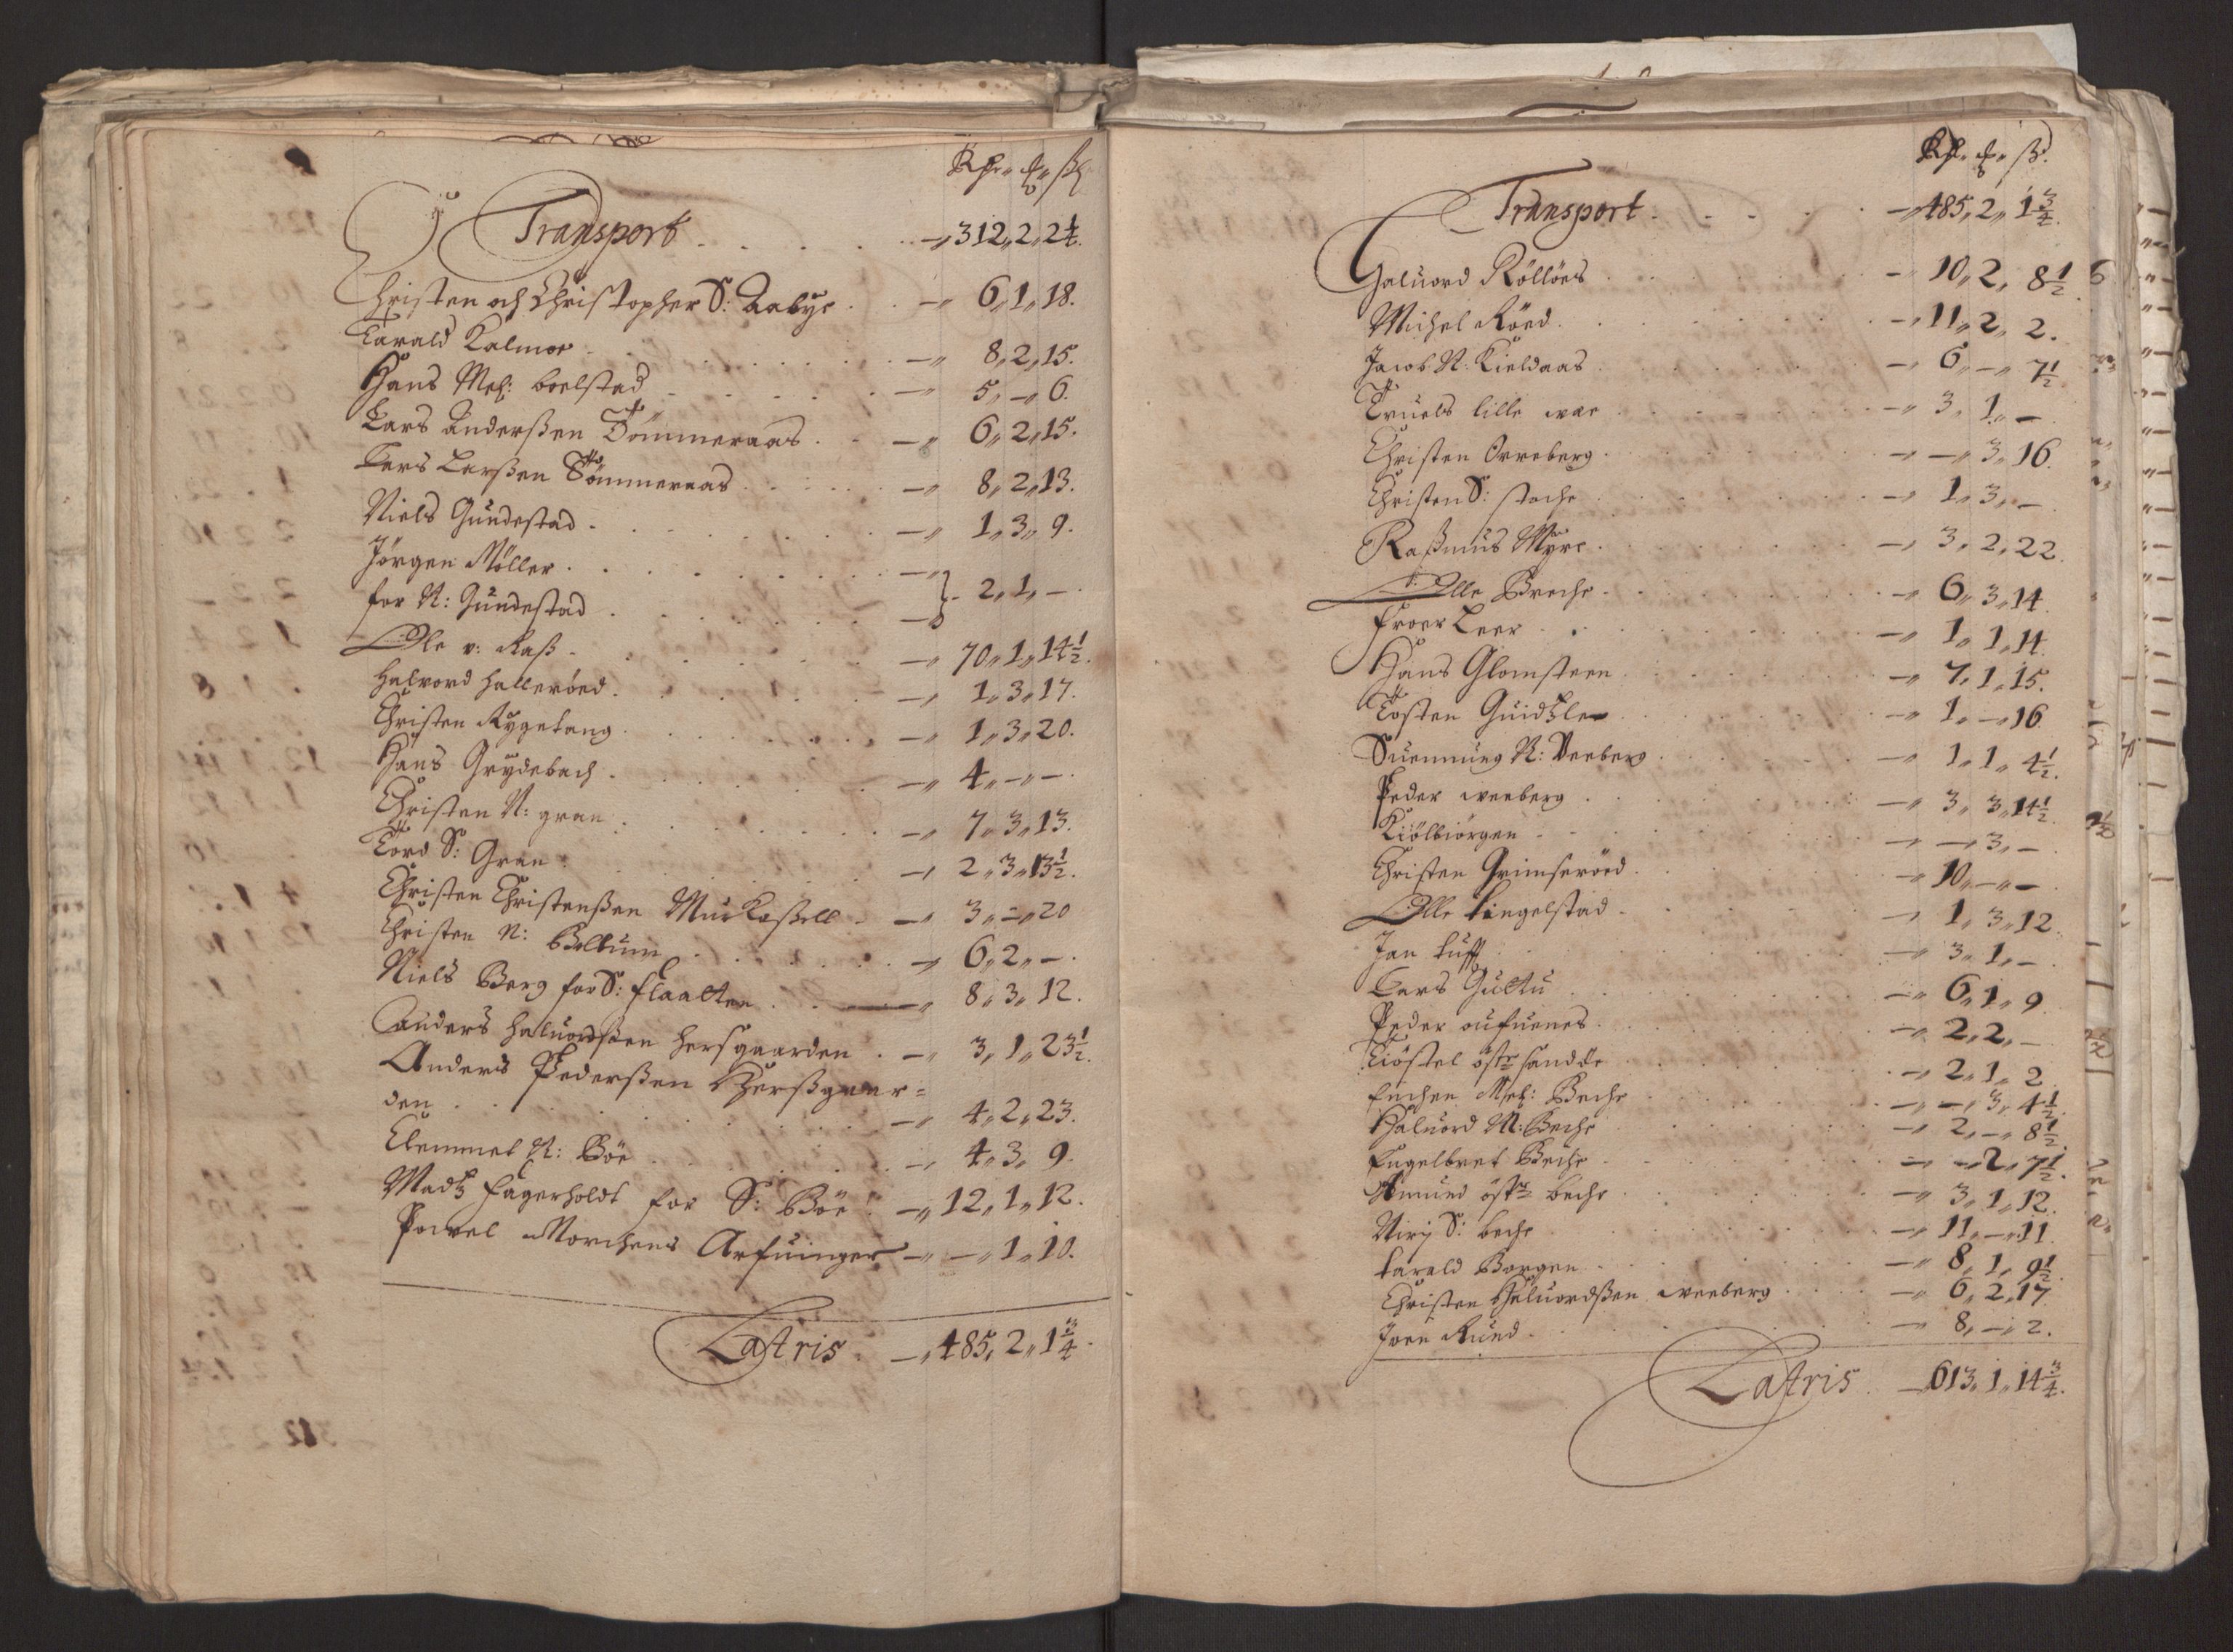 Rh „ ß
Transport . . . . . — 312„ 2„ 2¼.
Christen och Christopher S: Aabye . . — 6„ 1„ 18.
Tarald Kalmoe . . . . — 8„ 2„ 15.
Hans Mel: boelstad . . . . — 5„ —„ 6.
Lars Anderßen Tömmeraas . . — 6„ 2„ 15.
Lars Larßen Tömmeraas . . . — 8„ 2„ 13.
Niels Gundestad . . . . — 1„ 3„ 9.
Jörgen Möller . . . . —
for N: Gundestad . . . . — } 2„ 1„ —.
Ole v: Raß . . . . — 70„ 1„ 14½.
Halvord Halleröed . . . . — 1„ 3„ 17.
Christen Rygetang . . . . — 1„ 3„ 20.
Hans Grydebach . . . . — 4„ —„ —.
Christen N: gran . . . . — 7„ 3„ 13.
Tord S: Gran . . . . — 2„ 3„ 13½.
Christen Christenßen Murkaßell . — 3„ —„ 20
Christen N: Boltum . . . . — 6„ 2„ —.
Niels Berg for S: flaatten . . — 8„ 3„ 12.
Anders Haluordßen Hersgaarden . — 3„ 1„ 23½.
Anders Pederßen Herßgaar=
den . . . . — 4„ 2„ 23.
Clemmet N: Böe . . . . — 4„ 3„ 9.
Madtz Fagerholdt for S: Böe . — 12„ 1„ 12.
Powel Morchens Arfuinger — —„ 1„ 10.
Latris . — 485„ 2„ 1¾.
Rh „ ß.
Transport . . . . — 485„ 2„ 1¾.
Haluord Röllöes . . . — 10„ 2„ 8½.
Michel Röed . . . . — 11„ 2„ 2.
Jacob N: Kieldaas . . . — 6„ —„ 7½.
Truels lille wae . . . — 3„ 1„ —
Christen Orreberg . . . — —„ 3„ 16.
Christen S: stoche . . . — 1„ 3„ —
Raßmus Myre . . . — 3„ 2„ 22.
Olle Breche . . . — 6„ 3„ 14.
froer Leer . . . — 1„ 1„ 14.
Hans Glomsteen . . . — 7„ 1„ 15.
Tosten Guidtzler . . . — 1„ —„ 16.
Suennung N: Veeberg . . . — 1„ 1„ 4½.
Peder weeberg . . . — 3„ 3„ 14½.
Kiölbiörgen . . . — —„ 3„ —
Christen Grimseröed . . . — 10„ —„ —
Olle Tingelstad . . . — 1„ 3„ 12.
Jan tuff . . . — 3„ 1„ —
Lars Gultu . . . — 6„ 1„ 9
Peder oufuenes . . . — 2„ 2„ —
Kiöstel östr sandde . . . — 2„ 1„ 2
Enchen Mel: Beche . . . — —„ 3„ 4½.
Haluord N: Beche . . . — 2„ —„ 8½.
Engelbret Beche . . . — —„ 2„ 7½.
Amund östr beche . . . — 3„ 1„ 12.
Niri S: beche . . . — 11„ —„ 11.
Tarald Borgen . . . — 8„ 1„ 9½.
Christen Haluordßen weeberg . . — 6„ 2„ 17
Joen Rund . . . — 8„ —„ 2.
Latris . — 613„ 1„ 14¾.